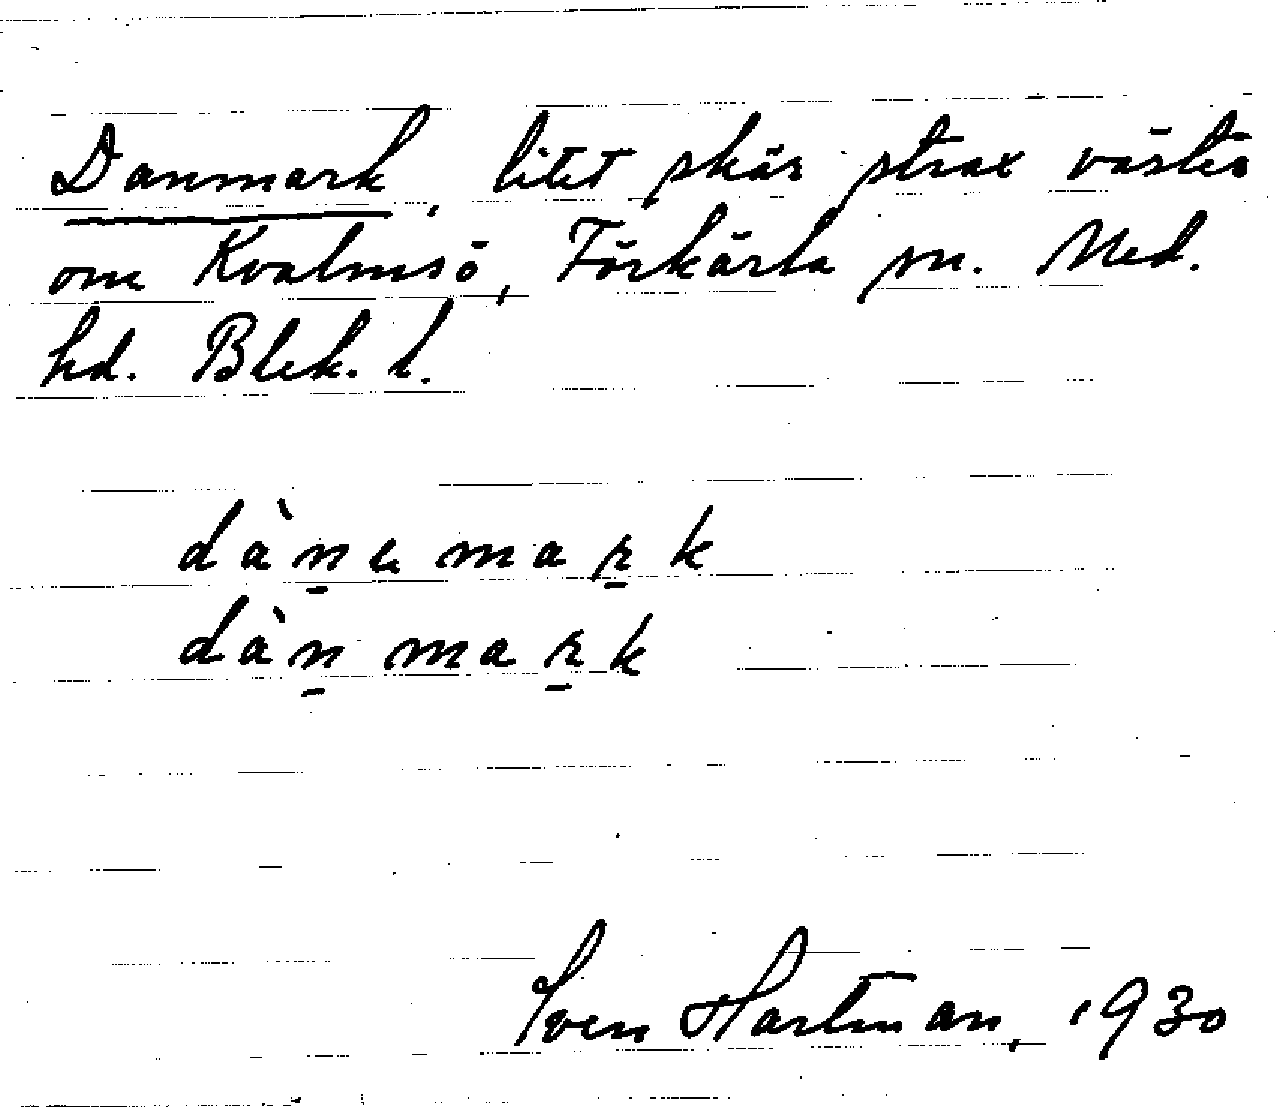 Danmark, litet skär strax väster
om Kvalmsö, Förkärla sn. Med.
hd. Blek. l.
dàn̠ɐmaɽ̠k
dàn̠maɽ̠k
Sven Hartman, 1930